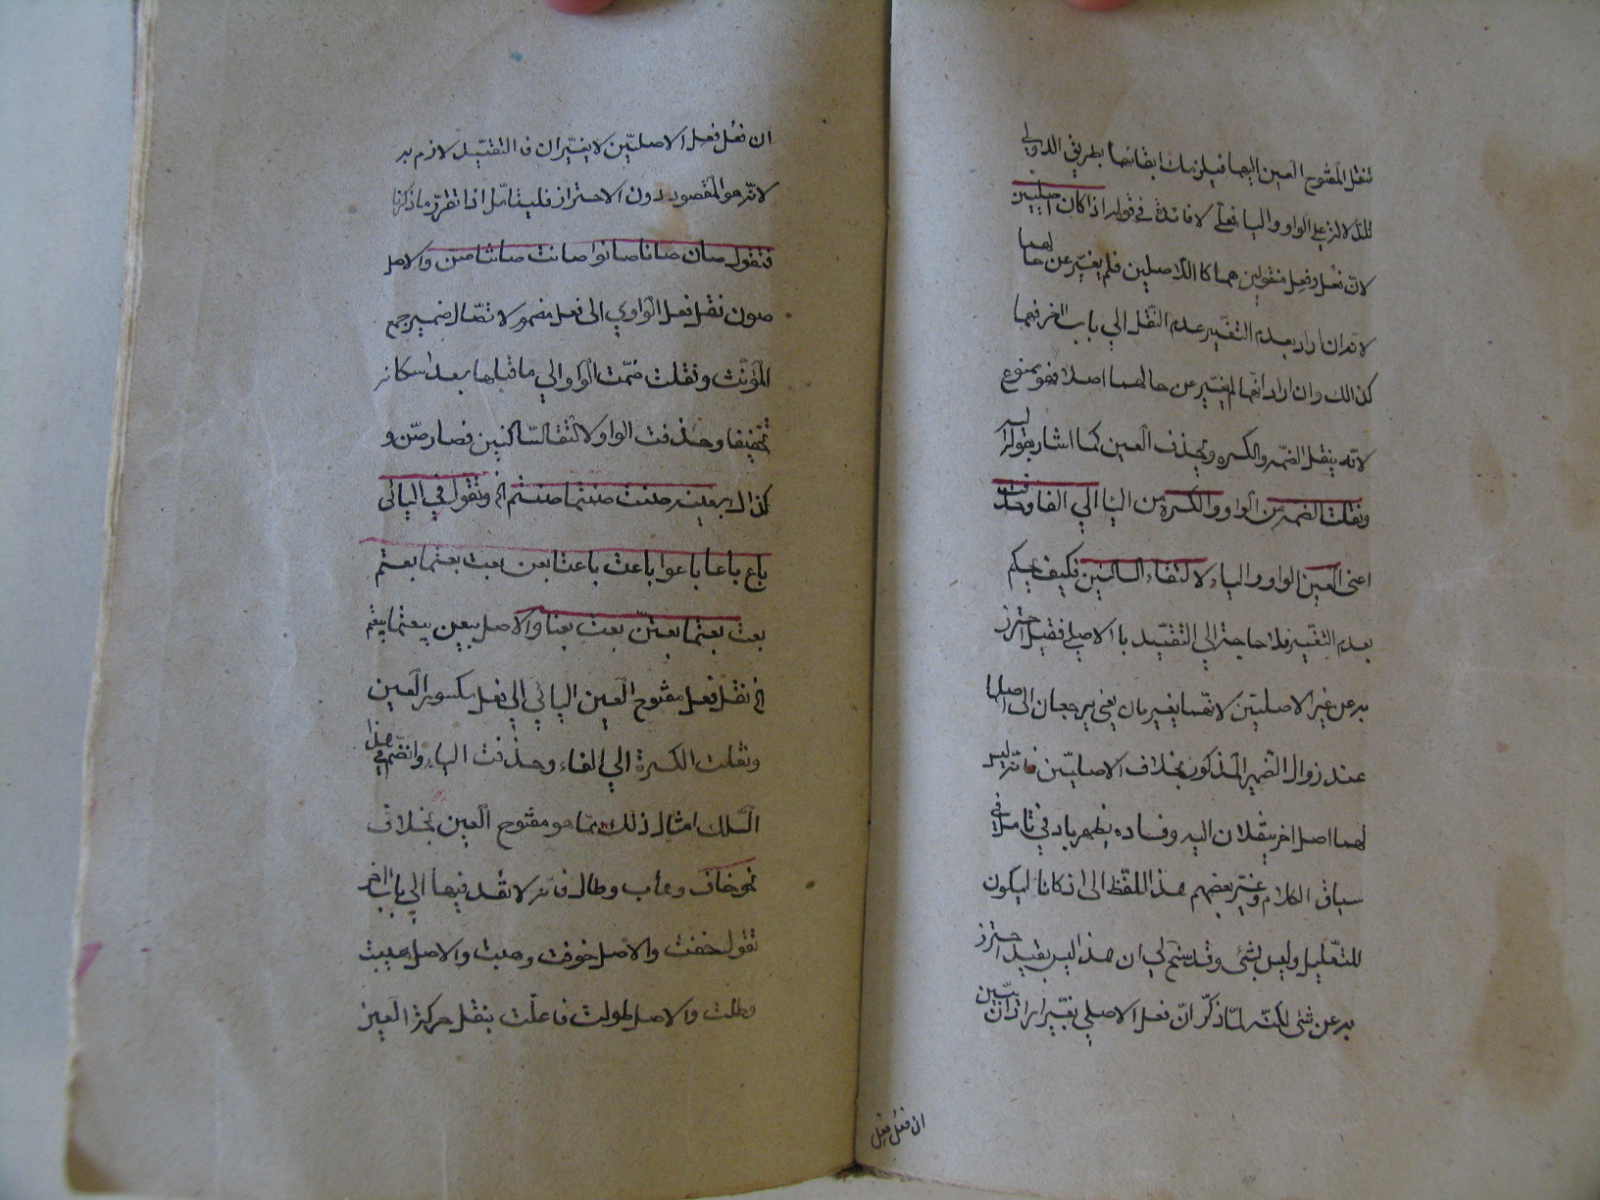 تنقل المفتوح العين اليهما فيلزمك ابقائهما بطريق الاولى
للدلالة على الواو والياء فعلم لا فائدة في قوله اذا كان اصليين
لان فعل وفعل منقولين هما كالاصليين فلم يغيّر عن حالهما
لانه ان اراد بعدم التغيّر عدم النقل الي باب اخر فهما
كذالك وان اراد انهما لم يغيّر عن حالهما اصلا فهو ممنوع
لانه ينقل الضمه والكسره ويحذف العين كما اشار اليه بقوله
ونقلت الضمه من الواو والكسرة من اليا الي الفا وحذفت
اعنى العين الواو والياء لالتقاء الساكنين فكيف يحكم
بعدم التغيير فلا حاجة الي التقييد بالاصلي فقيل احترز
به عن غير الاصليّين لانهما يغيران يعني يرجعان الى اصلهما
عند زوال الضمير المذكور بخلاف الاصليّين فانه ليس
لهما اصل اخر ينقلان اليه وفساده يظهر بادني تامل في
سياق الكلام وغيّر بعضهم هذا اللفظ الى اذ كانا ليكون
للتعليل وليس بشئ وقد سنح لي ان هذا ليس بقيد احترز
به عن شئ لكنه لما ذكر انّ فعل الاصلي تغيّر اراد ان يبيّن
ان فعُل فعِل
ان فعُل فعِل الاصليّين لا يغيّران فالتقييد لازم به
لانه هو المقصود دون الاحتراز فليتامّل اذا تقرّر ما ذكرنا
فتقول صان صانا صانوا صانت صانتا صن والاصل
صون نقل فعل الواوي الى فعل مضموم لاتصال ضمير جمع
المؤنّث ونقلت ضمّت الواو الي ما قبلها بعد اسكانه
تخفيفا وحذفت الواو لالتقا الساكنين فصار صنّ و
كذالك بعينه صنت صنتما صنتم الخ وتقول في اليائى
باع باعا باعوا باعت باعتا بعن بعت بعتما بعتم
بعت بعتما بعتنّ بعت بعنا والاصل بيعن بيعتما بيعتم
الخ نقل فعل مفتوح العين اليائي الي فعل مكسور العين
ونقلت الكسرة الي الفاء وحذفت الياء وانضم في هذا
السلك امثال ذلك مما هو مفتوح العين بخلاف
نحو خاف وهاب وطال فانه لا نقل فيها الي باب اخر
تقول خفت والاصل خوفت وهبت والاصل هيبت
وطلت والاصل طولت فاعلّت بنقل حركة العين